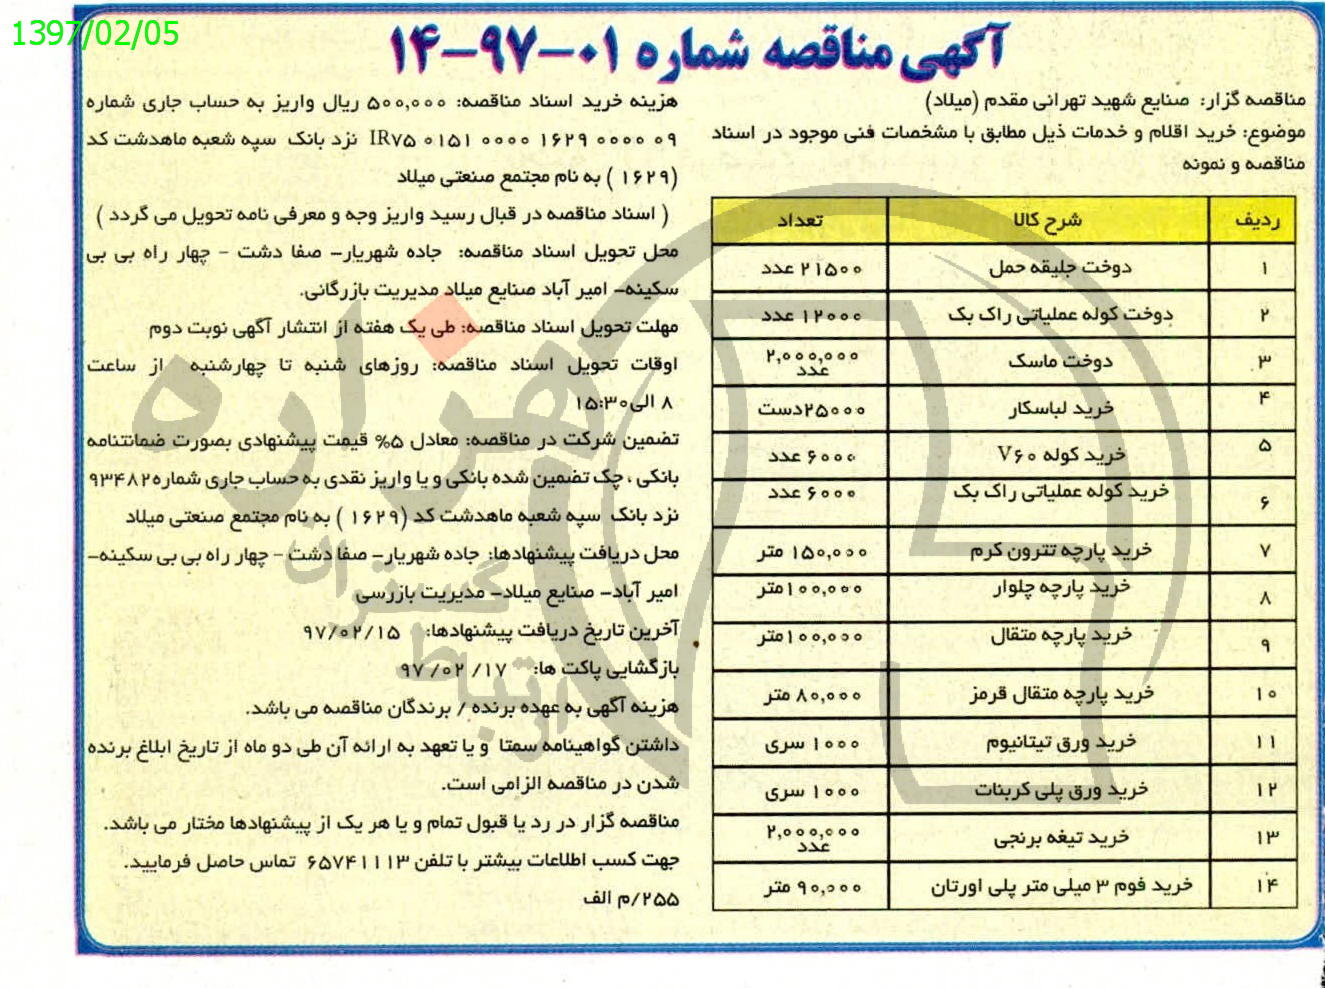 1397/02/05
آگهی مناقصه شماره ۰۱-۹۷-۱۴
مناقصه گزار: صنایع شهید تهرانی مقدم (میلاد)
موضوع: خرید اقلام و خدمات ذیل مطابق با مشخصات فنی موجود در اسناد
مناقصه و نمونه
ردیف شرح کالا تعداد
۱ دوخت جلیقه حمل ۲۱۵۰۰ عدد
۲ دوخت کوله عملیاتی راک بک ۱۲۰۰۰ عدد
۳ دوخت ماسک ۲,۰۰۰,۰۰۰ عدد
۴ خرید لباسکار ۲۵۰۰۰دست
۵ خرید کوله V۶۰ ۶۰۰۰ عدد
۶ خرید کوله عملیاتی راک بک ۶۰۰۰ عدد
۷ خرید پارچه تترون کرم ۱۵۰,۰۰۰ متر
۸ خرید پارچه چلوار ۱۰۰,۰۰۰متر
۹ خرید پارچه متقال ۱۰۰,۰۰۰متر
۱۰ خرید پارچه متقال قرمز ۸۰,۰۰۰ متر
۱۱ خرید ورق تیتانیوم ۱۰۰۰ سری
۱۲ خرید ورق پلی کربنات ۱۰۰۰ سری
۱۳ خرید تیغه برنجی ۲,۰۰۰,۰۰۰ عدد
۱۴ خرید فوم ۳ میلی متر پلی اورتان ۹۰,۰۰۰ متر
هزینه خرید اسناد مناقصه: ۵۰۰,۰۰۰ ریال واریز به حساب جاری شماره
IR۷۵ ۰۱۵۱ ۰۰۰۰ ۱۶۲۹ ۰۰۰۰ ۰۹ نزد بانک سپه شعبه ماهدشت کد
(۱۶۲۹) به نام مجتمع صنعتی میلاد
( اسناد مناقصه در قبال رسید واریز وجه و معرفی نامه تحویل می گردد )
محل تحویل اسناد مناقصه: جاده شهریار- صفا دشت - چهار راه بی بی
سکینه- امیر آباد صنایع میلاد مدیریت بازرگانی.
مهلت تحویل اسناد مناقصه: طی یک هفته از انتشار آگهی نوبت دوم
اوقات تحویل اسناد مناقصه: روزهای شنبه تا چهارشنبه از ساعت
۸ الی۱۵:۳۰
تضمین شرکت در مناقصه: معادل ۵% قیمت پیشنهادی بصورت ضمانتنامه
بانکی ، چک تضمین شده بانکی و یا واریز نقدی به حساب جاری شماره۹۳۴۸۲
نزد بانک سپه شعبه ماهدشت کد (۱۶۲۹) به نام مجتمع صنعتی میلاد
محل دریافت پیشنهادها: جاده شهریار- صفا دشت - چهار راه بی بی سکینه-
امیر آباد- صنایع میلاد- مدیریت بازرسی
آخرین تاریخ دریافت پیشنهادها: ۹۷/۰۲/۱۵
بازگشایی پاکت ها: ۹۷/۰۲/۱۷
هزینه آگهی به عهده برنده / برندگان مناقصه می باشد.
داشتن گواهینامه سمتا و یا تعهد به ارائه آن طی دو ماه از تاریخ ابلاغ برنده
شدن در مناقصه الزامی است.
مناقصه گزار در رد یا قبول تمام و یا هر یک از پیشنهادها مختار می باشد.
جهت کسب اطلاعات بیشتر با تلفن ۶۵۷۴۱۱۱۳ تماس حاصل فرمایید.
۲۵۵/م الف
هزاره
گستران
ارتباط